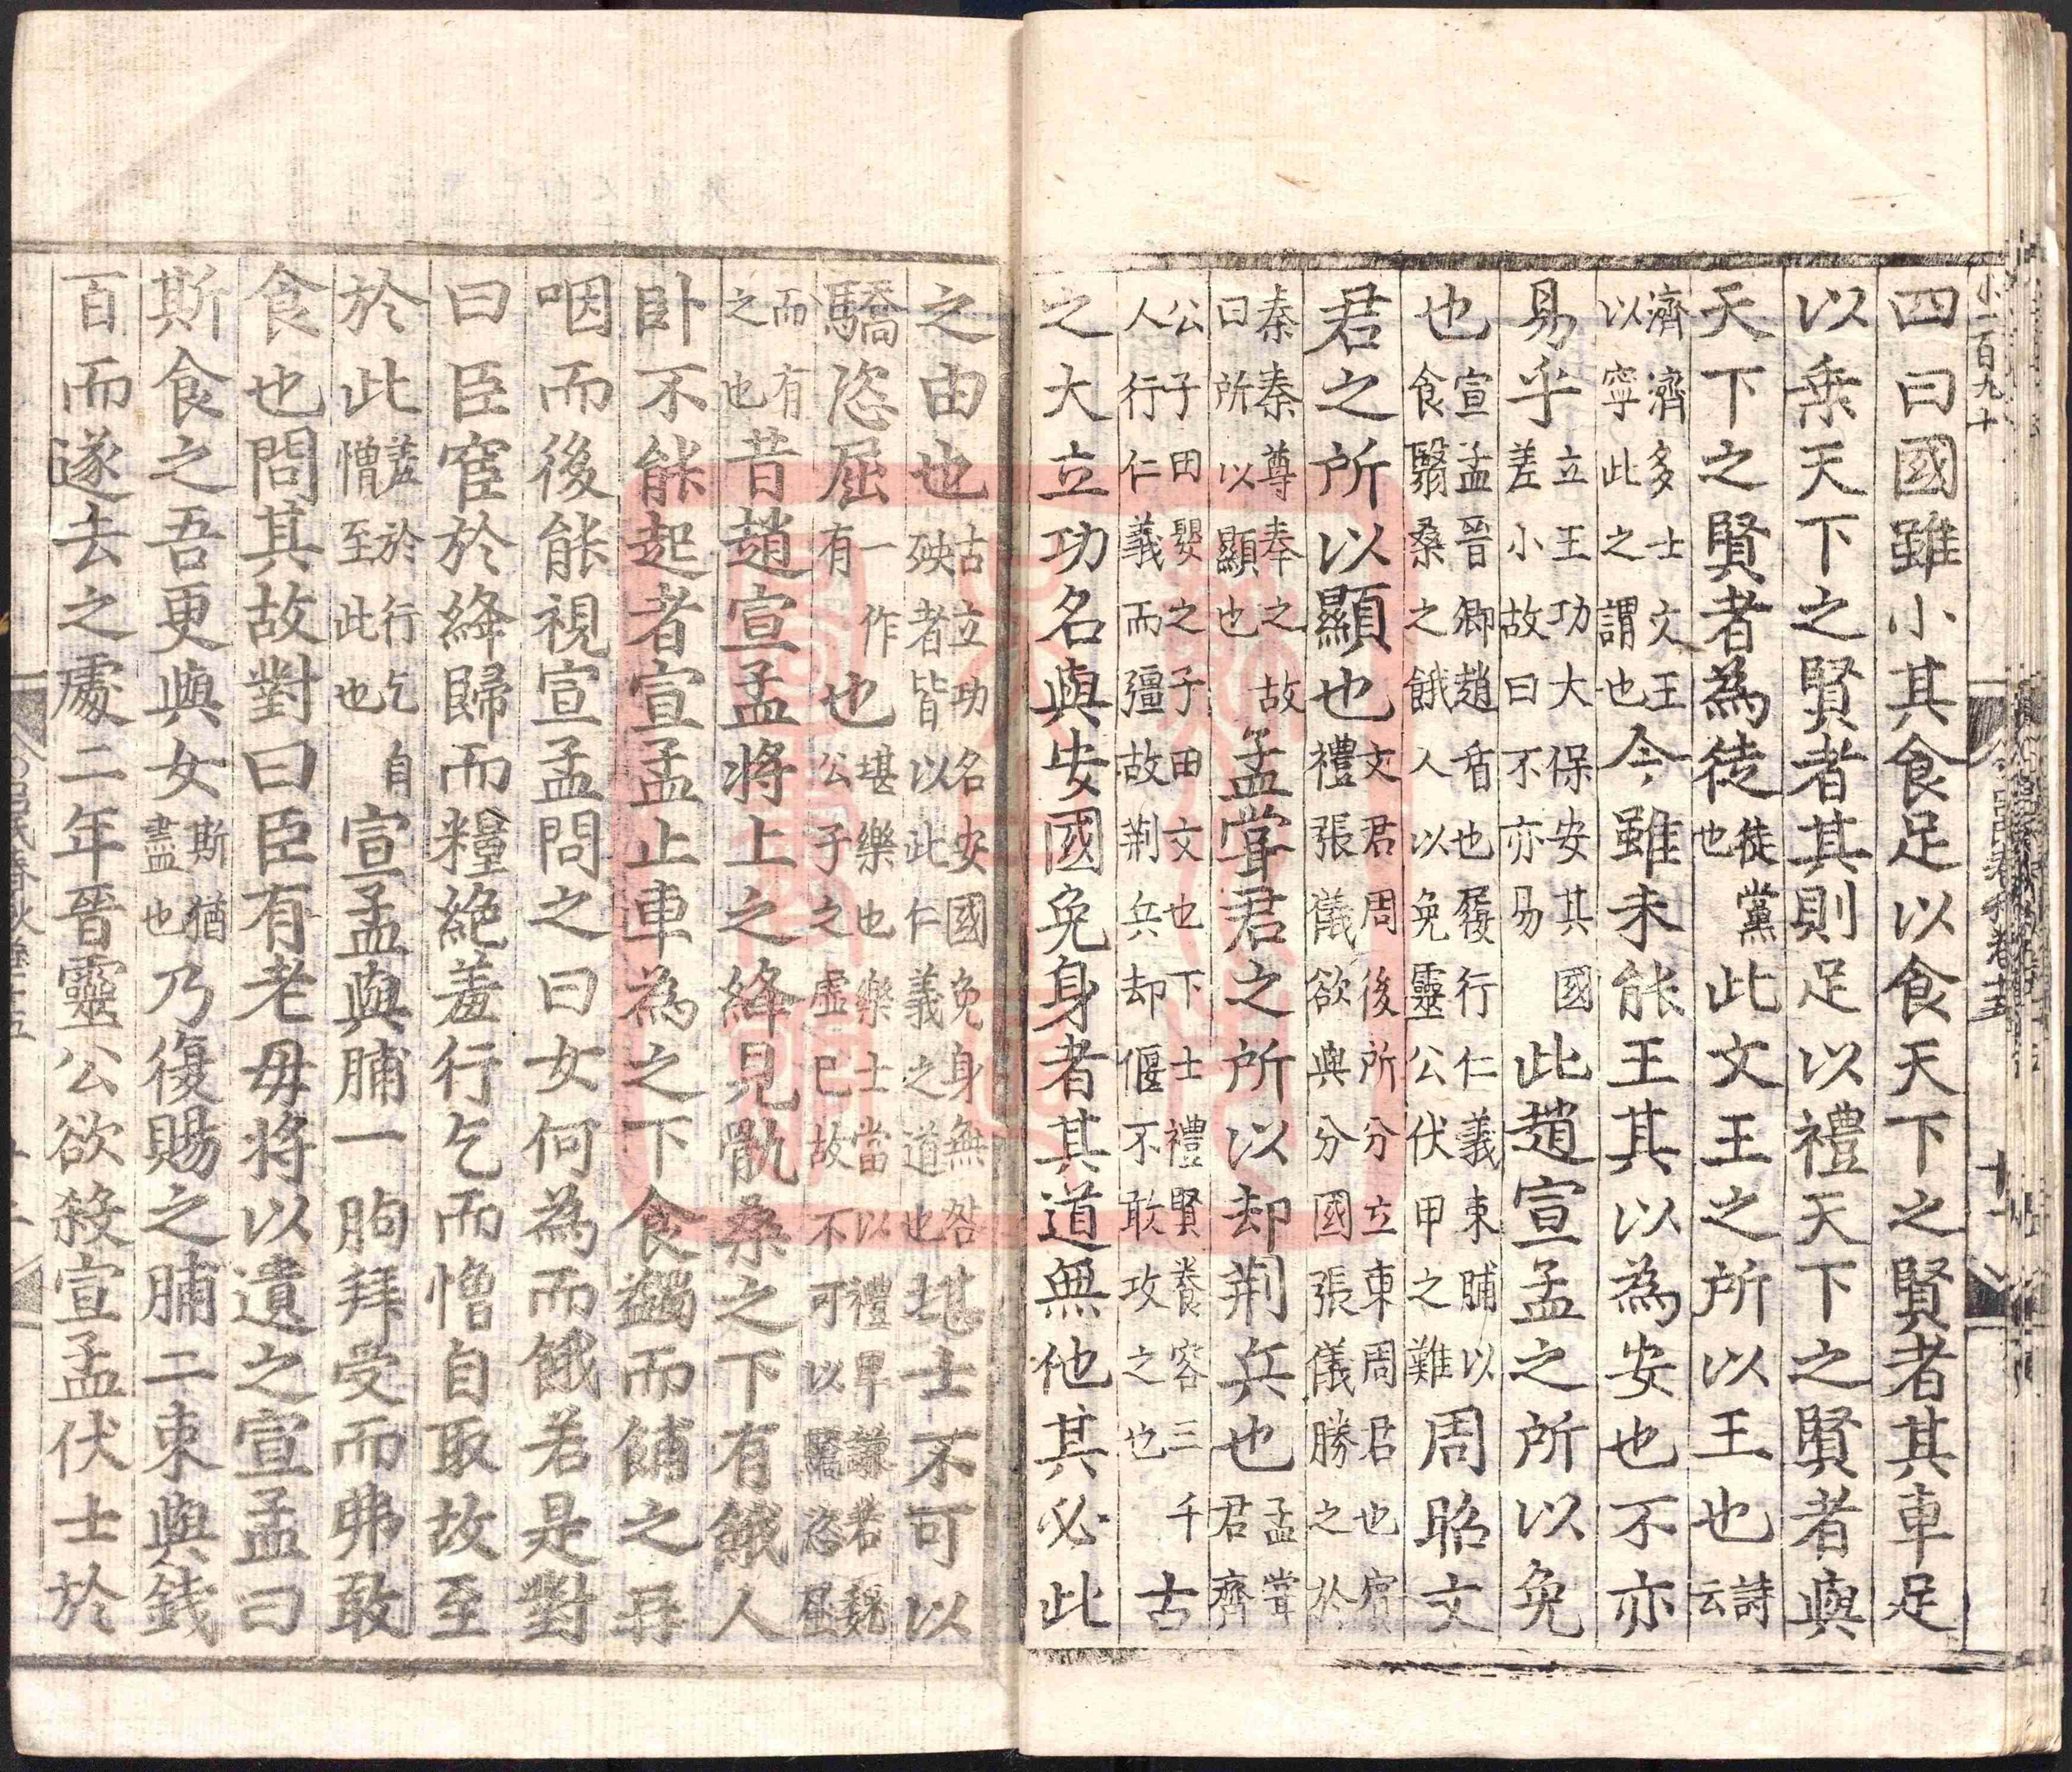 四曰國雖小其食足以食天下之賢者其車足
以乗天下之賢者其則足以禮天下之賢者與
天下之賢者為徒徒黨也此文王之所以王也詩云
濟濟多士文王以寧此之謂也今雖未能王其以為安也不亦
易乎立王功大保安其國差小故曰不亦易此趙宣孟之所以免
也宣孟晉卿趙盾也履行仁義束脯以食翳桑之餓人以免靈公伏甲之難周昭文
君之所以顯也文君周後所分立東周君也賔禮張儀欲與分國張儀勝之於
秦秦尊奉之故曰所以顯也孟甞君之所以却荆兵也孟甞君齊
公子田嬰之子田文也下士禮賢養客三千人行仁義而彊故荆兵却偃不敢攻之也古
之大立功名與安國免身者其道無他其必此
之由也古立功名安國免身無咎殃者皆以此仁義之道也堪士不可以
驕恣屈一作有也堪樂也樂士當以禮卑謙若魏公子之虛己故不可以驕恣屈
而有之也昔趙宣孟將上之絳見骫桑之下有餓人
卧不能起者宣孟止車為之下食蠲而餔之再
咽而後能視宣孟問之曰女何為而餓若是對
曰臣宦於絳歸而糧絶羞行乞而憎自取故至
於此羞於行乞自憎至此也宣孟與脯一朐拜受而弗敢
食也問其故對曰臣有老母將以遺之宣孟曰
斯食之吾更與女斯猶盡也乃復賜之脯二束與錢
百而遂去之處二年晉靈公欲殺宣孟伏士於
小一百九十
吕氏春秋卷十五
十一